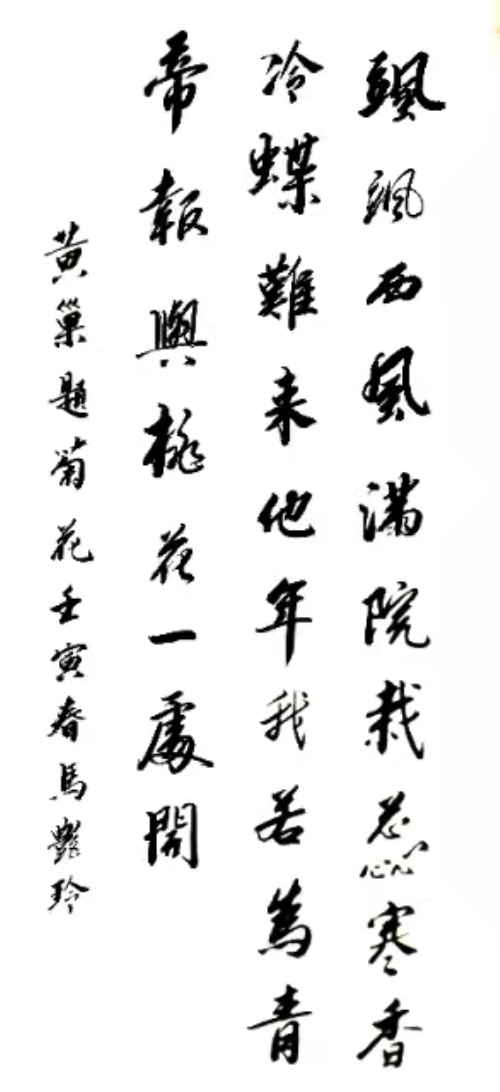 颯颯西風滿院栽蕊寒香
冷蝶難来他年我若為青
帝報與桃花一處開
黄巢題菊花壬寅春馬艷玲